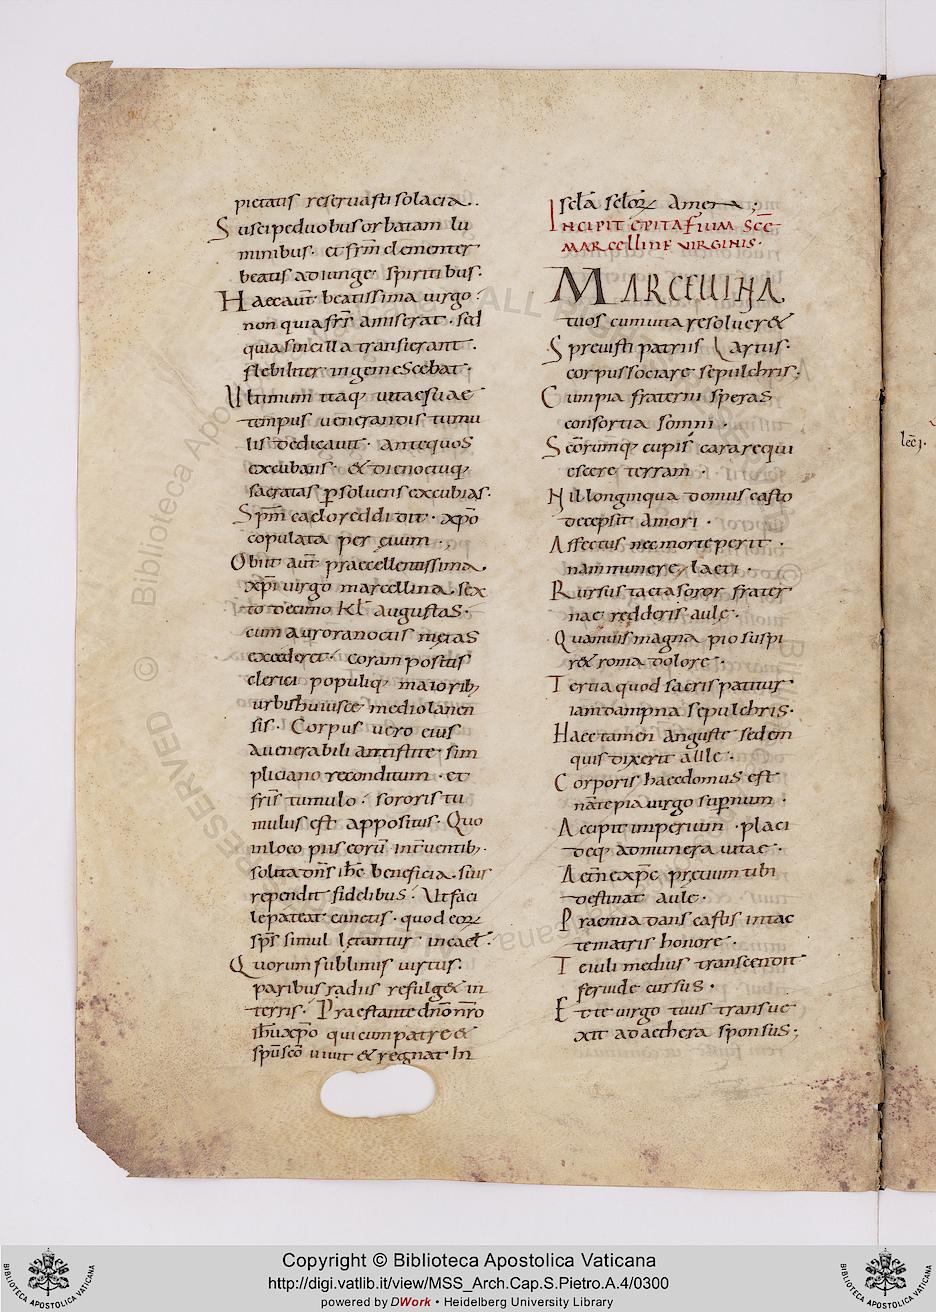 pietatis reservasti solacia..
Suscipe duobus orbatam lu
minibus. et frm clementer
beatis adiunge spiritibus.
Haec aut beatissima virgo
non quia frs amiserat. sed
quia sine illa transierant.
flebiliter ingemescebat.
Ultimum itaq vitae suae
tempus venerandis tumu
lis dedicavit. ante quos
excubans. & die noctuq
sacratas psolvens excubias.
Spm caelo reddidit. xpo
copulata per evum.
Obiit aut praecellentissima
xpi virgo marcellina. sex
to decimo Kl augustas.
cum aurora noctis metas
excederet. coram positis
clerici populiq maiorib;
urbis huiusce mediolanen
sis. Corpus vero eius
a venerabili antistite sim
pliciano reconditum. et
fris tumulo. sororis tu
mulus est appositus. Quo
in loco piis eoru intventib.
solita dns ihc beneficia. suis
rependit fidelibus. Ut faci
le pateat cunctis. quod eor
sps simul letantur in cael.
Quorum sublimis virtus.
paribus radiis refulg& in
terris. Praestante dno nro
ihu xpo qui cum patre &
spu sco vivit & regnat In
scla sclor amen;
INCIPIT EPITAFIUM SCE
MARCELLINE VIRGINIS.
MARCELLINA
tuos cum vita resolver&
Sprevisti patriis Lartus.
corpus sociare sepulchris;
Cum pia fraterni speras
consortia somni.
Scorumq cupis cara requi
escere terram.
Nil longinqua domus casto
decepsit amori.
Affectus nec morte perit.
nam munere laeti.
Rursus tacta soror frater
nae redderis aule.
Quamvis magna pio suspi
r& roma dolore.
Tertia quod sacris patitur
iam dampna sepulchris.
Haec tamen anguste sedem
quis dixerit aule.
Corporis haec domus est
nate pia virgo supnum.
Accipit imperium. placi
deq ad munera vitae.
Aetne xpe pretium tibi
destinat aule.
Praemia dans castis intac
te matris honore.
T civili medius transcendit
fervide cursus.
Et te virgo tuus transve
xit ad aethera sponsus;
lec.
Copyright © Biblioteca Apostolica Vaticana
http://digi.vatlib.it/view/MSS_Arch.Cap.S.Pietro.A.4/0300
powered by DWork • Heidelberg University Library